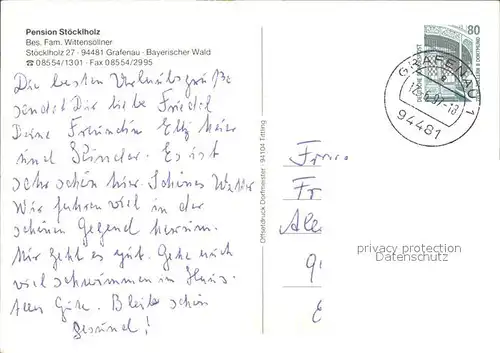 Pension Stöcklholz
Bes. Fam. Wittensöllner
Stöcklholz 27 · 94481 Grafenau · Bayerischer Wald
☎ 08554/1301 · Fax 08554/2995
Die besten Urlaubsgrüße
sendet Dir liebe Friedel
Deine Freundin Elly
und Kinder. Es ist
sehr schön hier. Schönes Wetter
Wir fahren viel in der
schönen Gegend herum.
Mir geht es gut. Gehe auch
viel schwimmen im Haus.
Alles Gute. Bleib schön
gesund!
Offsetdruck Dorfmeister · 94104 Tittling
80
GRAFENAU 1
94481
Frau
Fr
privacy protection
Datenschutz